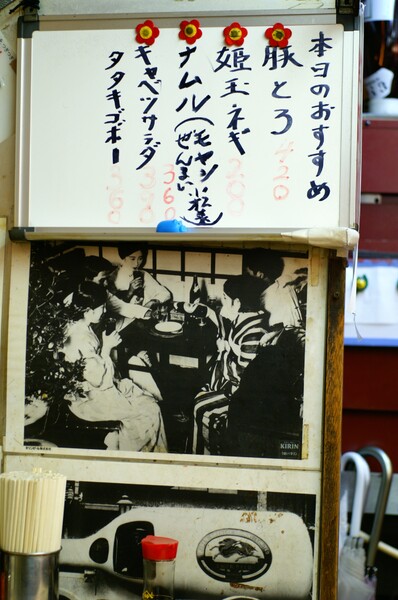 本日のおすすめ
豚とろ 420
姫玉ネギ
ナムル(モヤシ 小松菜 ぜんまい) 360
キャベツサラダ
タタキゴボー
KIRIN